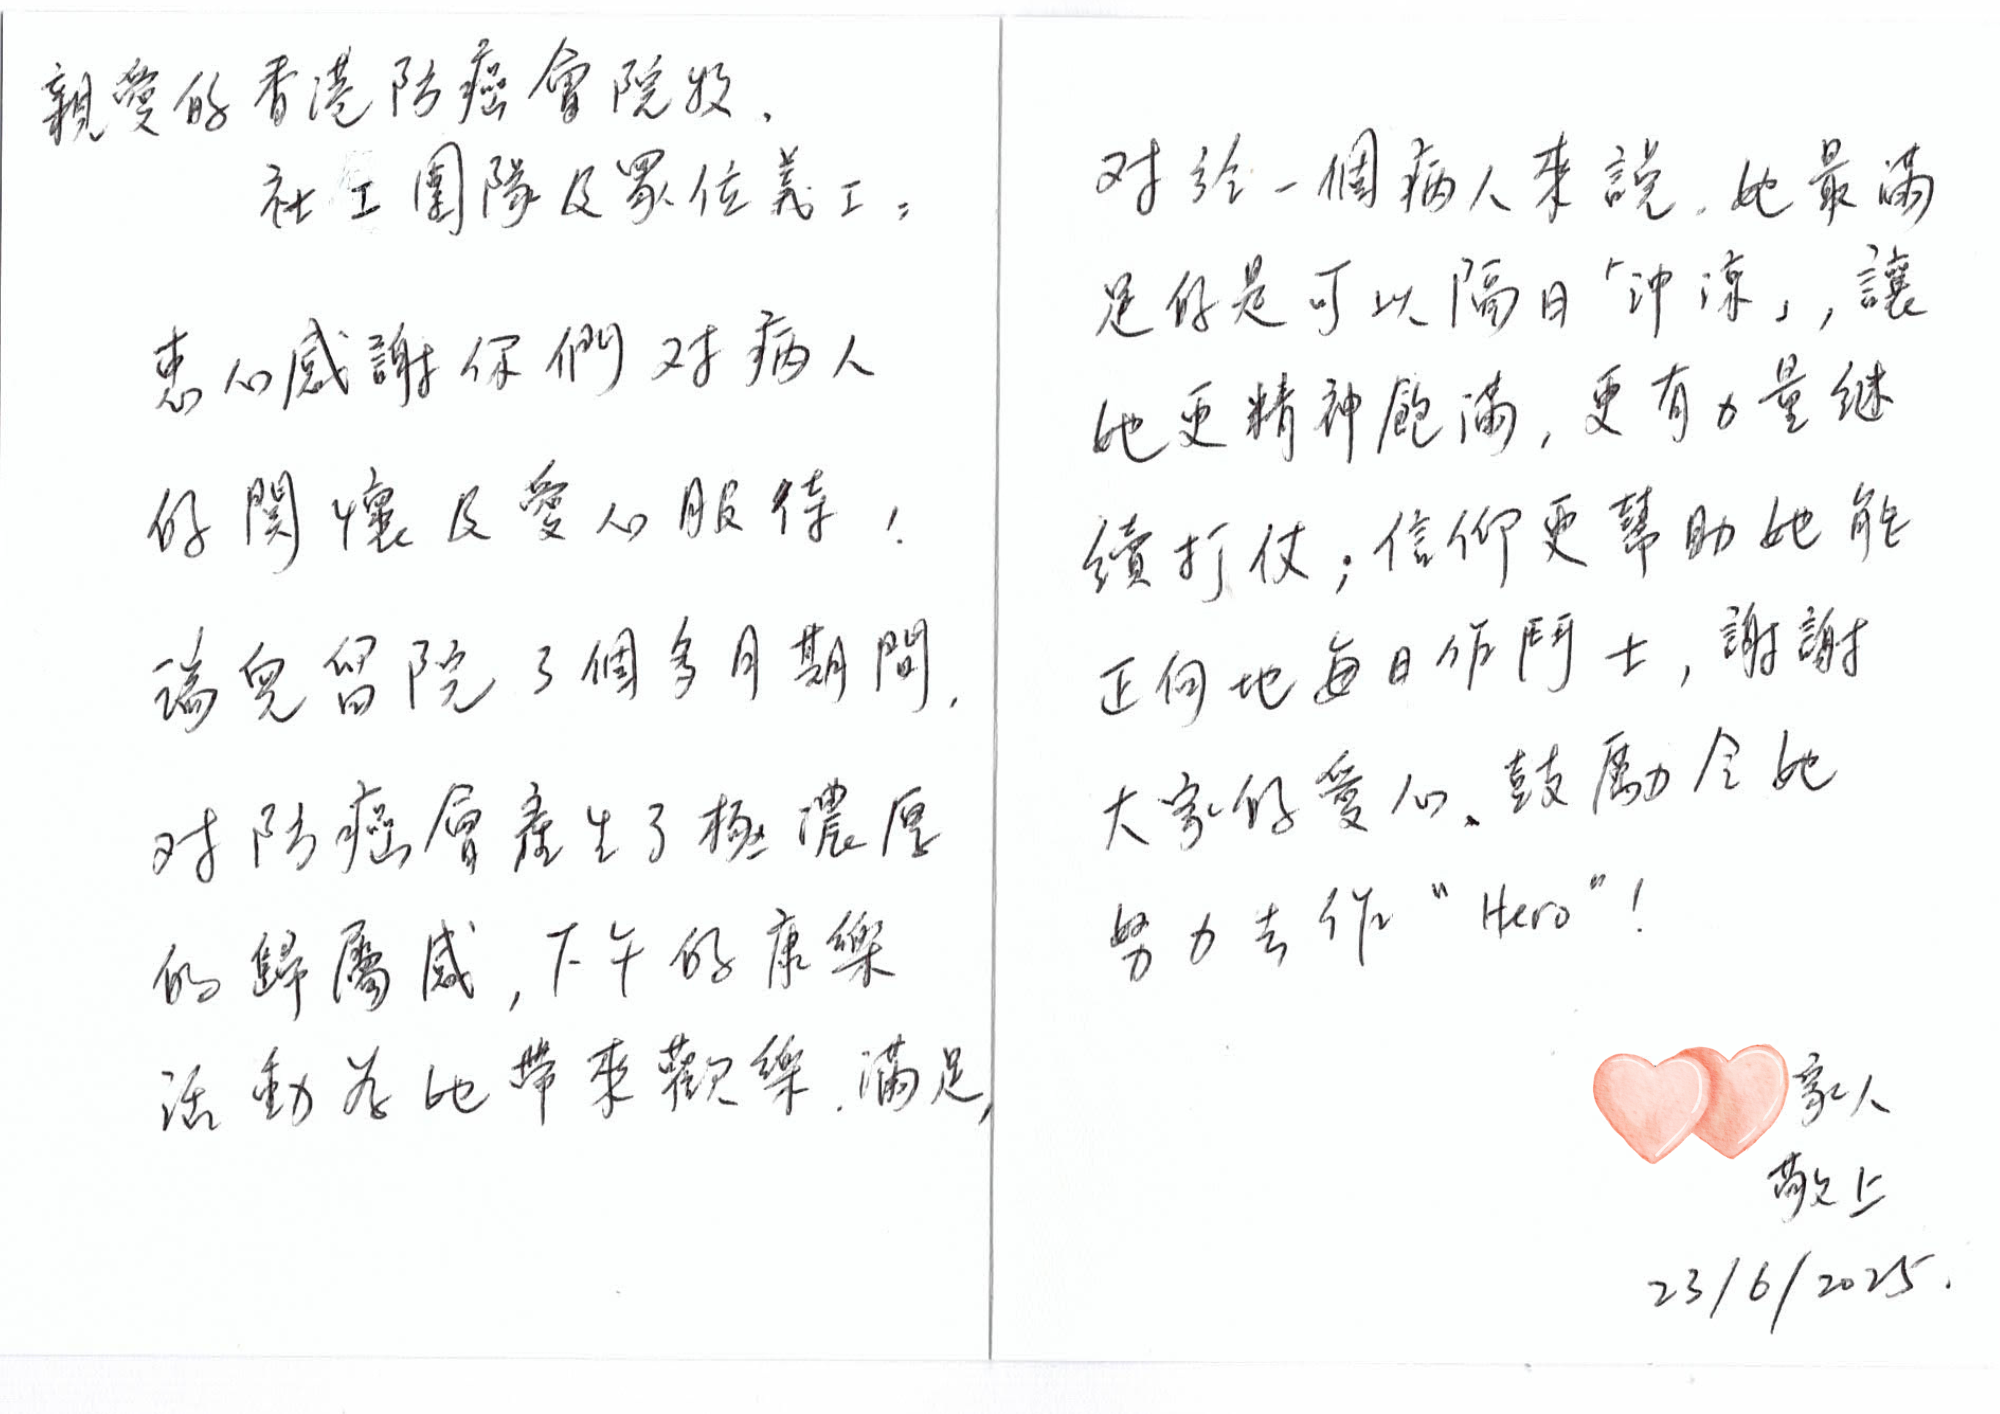 親愛的香港防癌會院牧、
社工團隊及眾位義工：
衷心感謝你們对病人
的関懷及愛心服侍！
瑞兒留院3個多月期間，
对防癌會產生了極濃厚
的歸屬感，下午的康樂
活動為她帶來歡樂、滿足，
对於一個病人來説，她最滿
足的是可以隔日「沖涼」，讓
她更精神飽滿，更有力量継
續打仗；信仰更幫助她能
正向地每日作鬥士，謝謝
大家的愛心、鼓勵令她
努力去作“Hero”！
家人
敬上
23/6/2025.